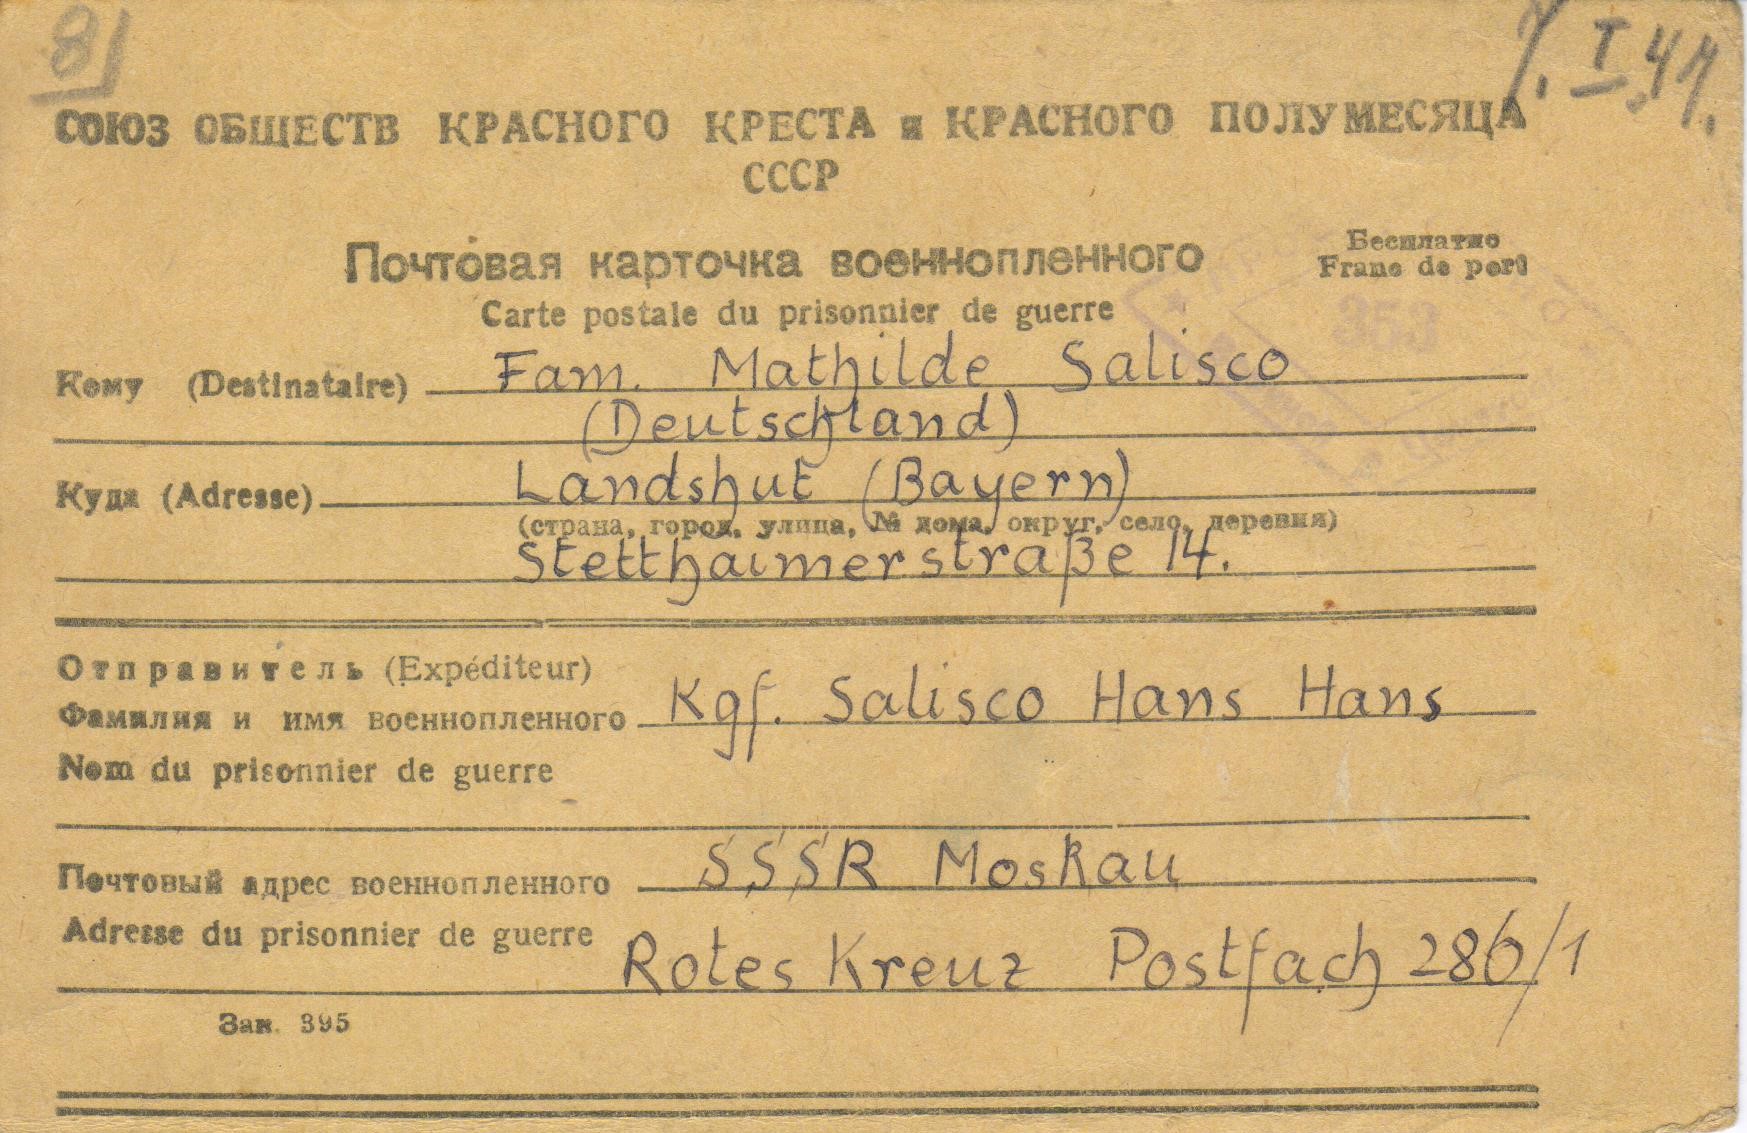 8)
7. I. 47.
СОЮЗ ОБЩЕСТВ КРАСНОГО КРЕСТА и КРАСНОГО ПОЛУМЕСЯЦА
СССР
Почтовая карточка военнопленного
Бесплатно
Carte postale du prisonnier de guerre
Franc de port
353
Кому (Destinataire) Fam. Mathilde Salisco
(Deutschland)
Куда (Adresse) Landshut (Bayern)
(страна, город, улица, № дома, округ, село, деревня)
Stetthaimerstraße 14.
Отправитель (Expéditeur)
Фамилия и имя военнопленного Kgf. Salisco Hans Hans
Nom du prisonnier de guerre
Почтовый адрес военнопленного SSSR Moskau
Adresse du prisonnier de guerre Rotes Kreuz Postfach 286/1
Зак. 395